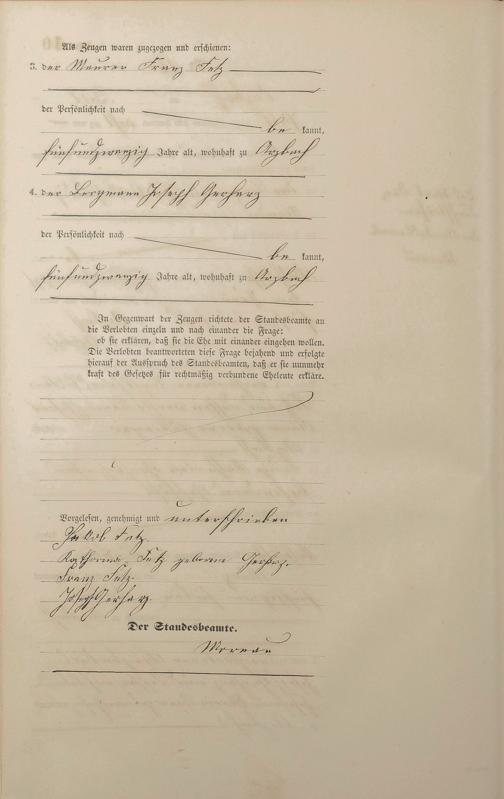 Als Zeugen waren zugezogen und erschienen:
3. der Maurer Franz Fetz
der Persönlichkeit nach
be kannt,
fünfundzwanzig Jahre alt, wohnhaft zu Arzbach
4. der Bergmann Joseph Gerharz
der Persönlichkeit nach
be kannt,
fünfundzwanzig Jahre alt, wohnhaft zu Arzbach
In Gegenwart der Zeugen richtete der Standesbeamte an
die Verlobten einzeln und nach einander die Frage:
ob sie erklären, daß sie die Ehe mit einander eingehen wollen.
Die Verlobten beantworteten diese Frage bejahend und erfolgte
hierauf der Ausspruch des Standesbeamten, daß er sie nunmehr
kraft des Gesetzes für rechtmäßig verbundene Eheleute erkläre.
Vorgelesen, genehmigt und unterschrieben
Jakob Fetz.
Katharina Fetz geborene Gerharz.
Franz Fetz.
Joseph Gerharz
Der Standesbeamte.